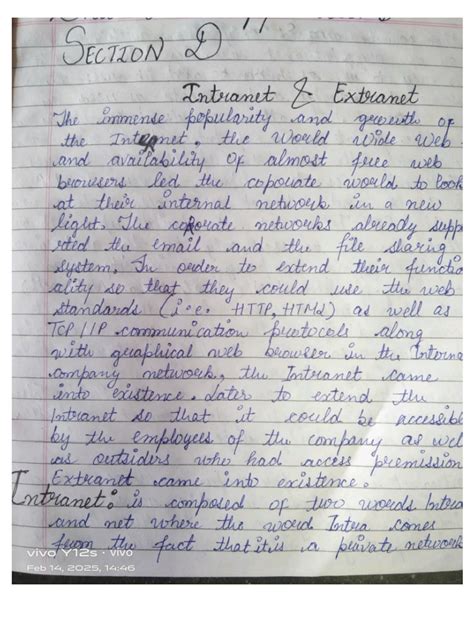 SECTION D
Intranet & Extranet
The immense popularity and growth of
the Internet, the World Wide Web
and availability of almost free web
browsers led the coporate world to look
at their internal network in a new
light. The corporate networks already supp
orted the email and the file sharing
system. In order to extend their functio
ality so that they could use the web
standards (i.e. HTTP, HTML) as well as
TCP//P communication protocols along
with graphical web browser in the Interna
company network, the Intranet came
into existence. Later to extend the
Intranet so that it could be accessible
by the employees of the company as wel
as outsiders who had access premission
Extranet came into existence.
Intranet: is composed of two words Intra
and net where the word Intera comes
from the fact that it is a private network
vivo Y12s · vivo
Feb 14, 2025, 14:46